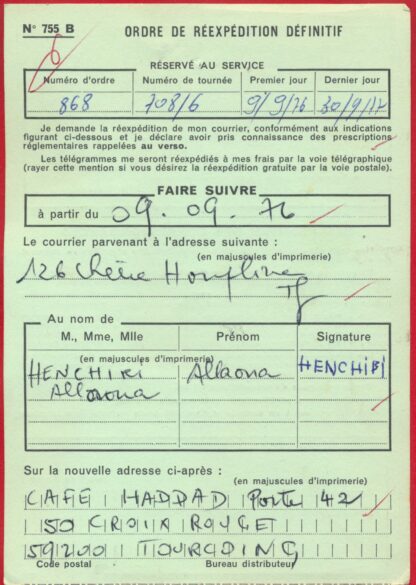 N° 755 B
ORDRE DE RÉEXPÉDITION DÉFINITIF
RÉSERVÉ AU SERVICE
Numéro d'ordre Numéro de tournée Premier jour Dernier jour
868 708/6 9/9/76 30/9/77
Je demande la réexpédition de mon courrier, conformément aux indications
figurant ci-dessous et je déclare avoir pris connaissance des prescriptions
réglementaires rappelées au verso.
Les télégrammes me seront réexpédiés à mes frais par la voie télégraphique
(rayer cette mention si vous désirez la réexpédition gratuite par la voie postale).
FAIRE SUIVRE
à partir du 09. 09. 76
Le courrier parvenant à l'adresse suivante :
(en majuscules d'imprimerie)
126 Houplines
Au nom de
M., Mme, Mlle Prénom Signature
(en majuscules d'imprimerie)
HENCHIRI Allaoua HENCHIRI
Allaoua
Sur la nouvelle adresse ci-après :
(en majuscules d'imprimerie)
CAFÉ HADDAD Porte 42
150 CROIX ROUGE
59200 TOURCOING
Code postal Bureau distributeur